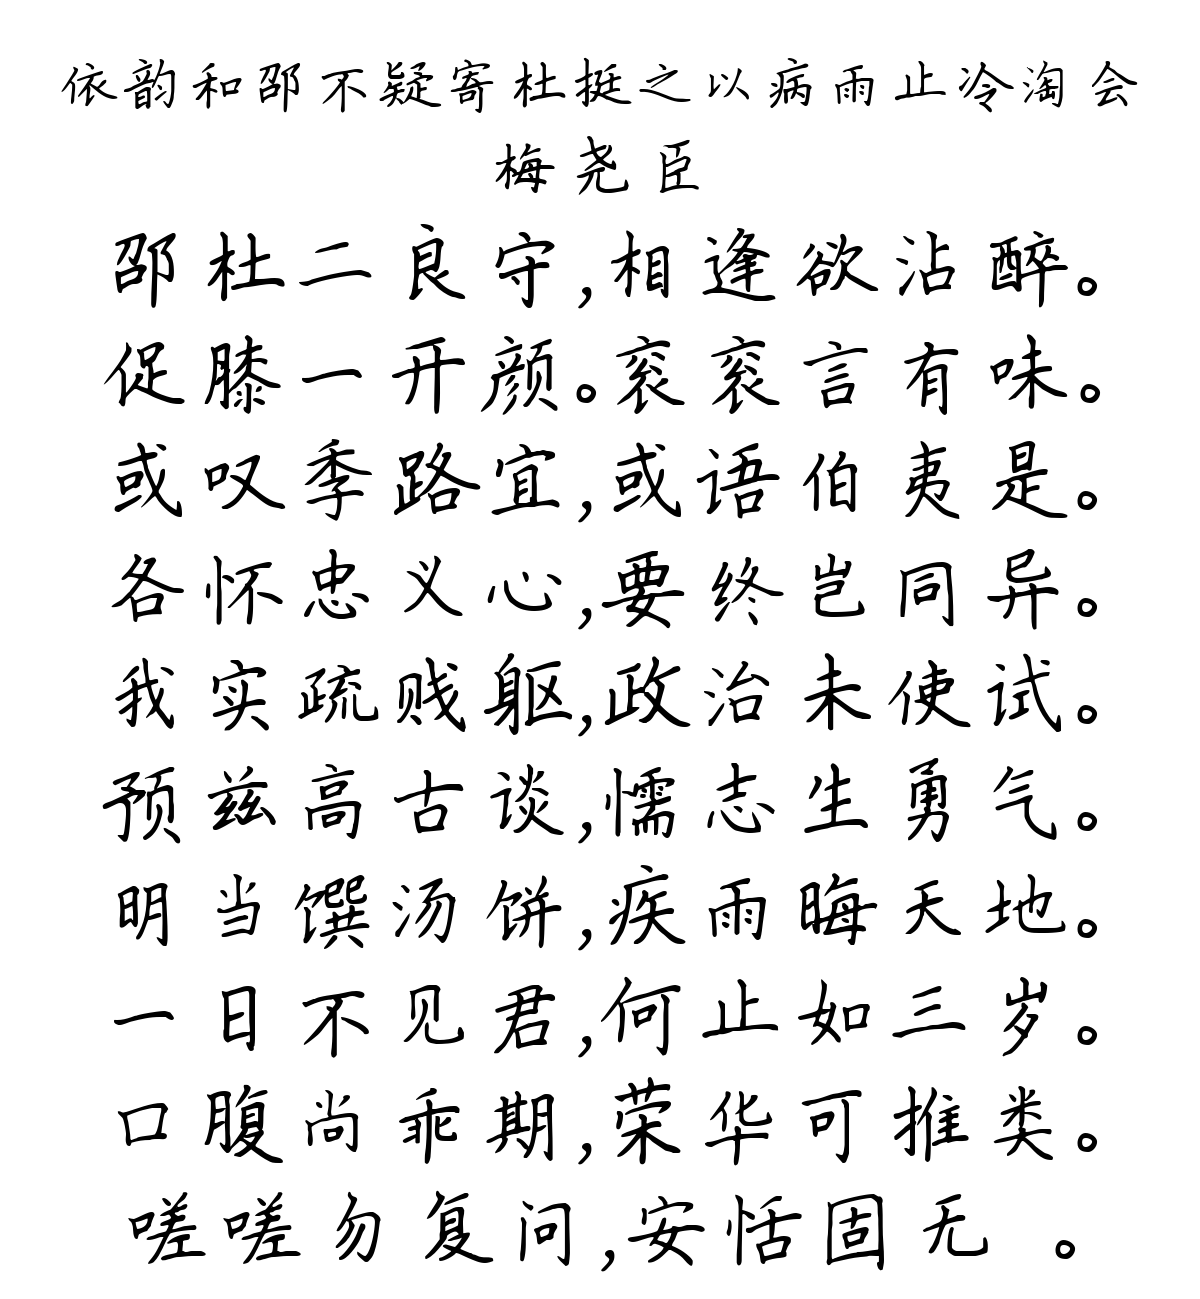 依韵和邵不疑寄杜挺之以病雨止冷淘会
梅尧臣
邵杜二良守,相逢欲沾醉。
促膝一开颜。衮衮言有味。
或叹季路宜,或语伯夷是。
各怀忠义心,要终岂同异。
我实疏贱躯,政治未使试。
预兹高古谈,懦志生勇气。
明当馔汤饼,疾雨晦天地。
一日不见君,何止如三岁。
口腹尚乖期,荣华可推类。
嗟嗟勿复问,安恬固无 。